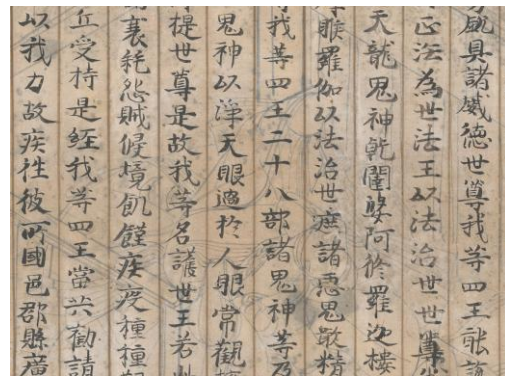 威具諸威德世尊我等四王能護
正法為世法王以法治世世尊
天龍鬼神乹闥婆阿脩羅迦樓
睺羅伽以法治世遮諸惡鬼噉精
我等四王二十八部諸鬼神等及
鬼神以淨天眼過於人眼常觀
提世尊是故我等名護世王若
衰耗怨賊侵境飢饉疾疫種種
丘受持是經我等四王當共勸請
以我力故疾往彼所國邑郡縣廣